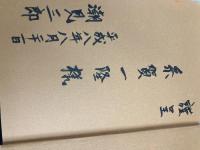 謹呈
糸賀一隆様
平成八年八月二十一日
潮見三郎